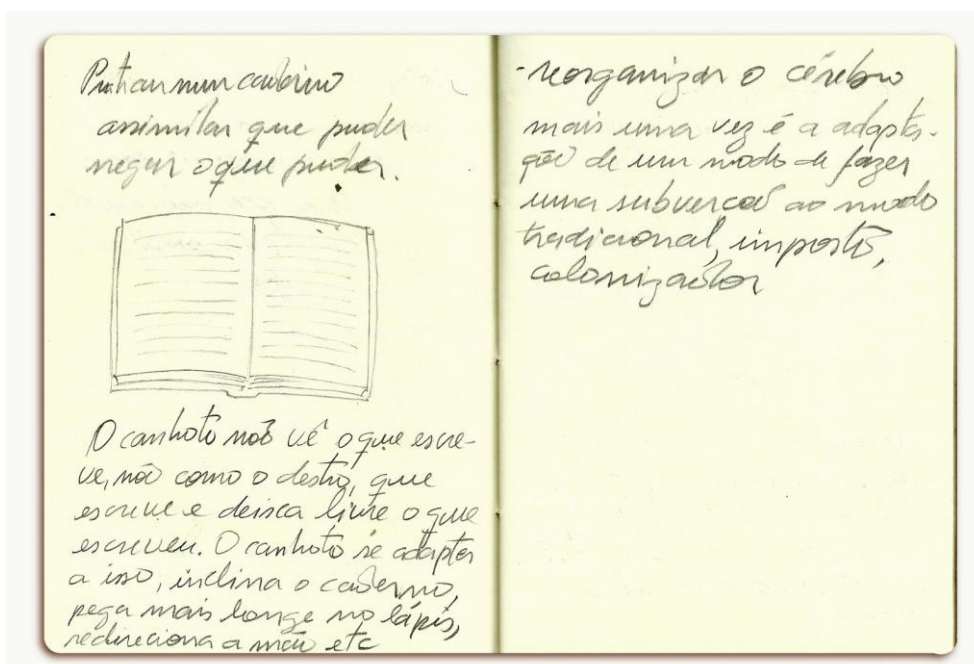 num caderno
assimilar que puder
negar o que puder.
O canhoto não vê o que escre-
ve, não como o destro, que
escreve e deixa livre o que
escreveu. O canhoto se adapta
a isso, inclina o caderno,
pega mais longe no lápis,
redireciona a mão etc
-reorganizar o cérebro
mais uma vez é a adapta-
ção de um modo de fazer
uma subverção ao modo
tradicional, imposto,
colonizador